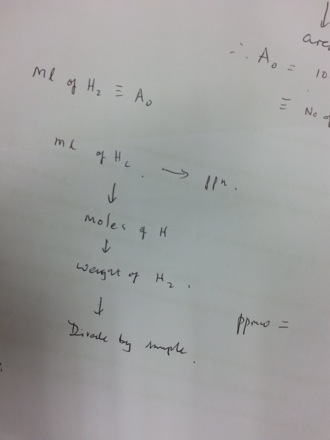 area
∴ A₀ = 10
ml of H₂ ≡ A₀
≡ No of
ml of H₂. →
↓
Moles of H
↓
Weight of H₂.
↓
Divide by sample.
ppmw =